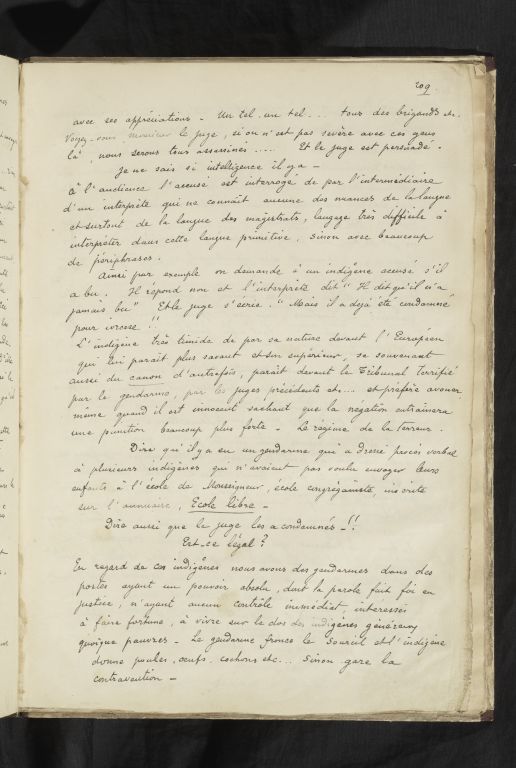 209
avec ses appréciations - Un tel. un tel... tous des brigands etc.
Voyez-vous monsieur le juge, si on n'est pas sévère avec ces gens
là, nous serons tous assassinés..... Et le juge est persuadé.
Je ne sais si intelligence il y a -
à l'audience l'accusé est interrogé de par l'intermédiaire
d'un interprète qui ne connait aucune des nuances de la langue
et surtout de la langue des magistrats, langage très difficile à
interpréter dans cette langue primitive, sinon avec beaucoup
de périphrases.
Ainsi par exemple on demande à un indigène accusé s'il
a bu. Il répond non et l'interprète dit "Il dit qu'il n'a
jamais bu" Et le juge s'écrie. "Mais il a dejà été condamné
pour ivresse"!!
L'indigène très timide de par sa nature devant l'Européen
qui lui parait plus savant et son supérieur, se souvenant
aussi du canon d'autrefois, parait devant le Tribunal terrifié
par le gendarme, par les juges précédents etc... et préfère avouer
même quand il est innocent sachant que la négation entrainera
une punition beaucoup plus forte - Le régime de la terreur.
Dire qu'il y a eu un gendarme qui a dressé procès verbal
à plusieurs indigènes qui n'avaient pas voulu envoyer leurs
enfants à l'école de Monseigneur, école congréganiste, inscrite
sur l'annuaire, Ecole libre -
Dire aussi que le juge les a condamnés -!!
Est-ce légal?
En regard de ces indigènes nous avons des gendarmes dans des
postes ayant un pouvoir absolu, dont la parole fait foi en
justice, n'ayant aucun contrôle immédiat, interessés
à faire fortune, à vivre sur le dos des indigènes généreux
quoique pauvres - Le gendarme fronce le sourcil et l'indigène
donne poules, oeufs, cochons etc... Sinon gare la
contravention -